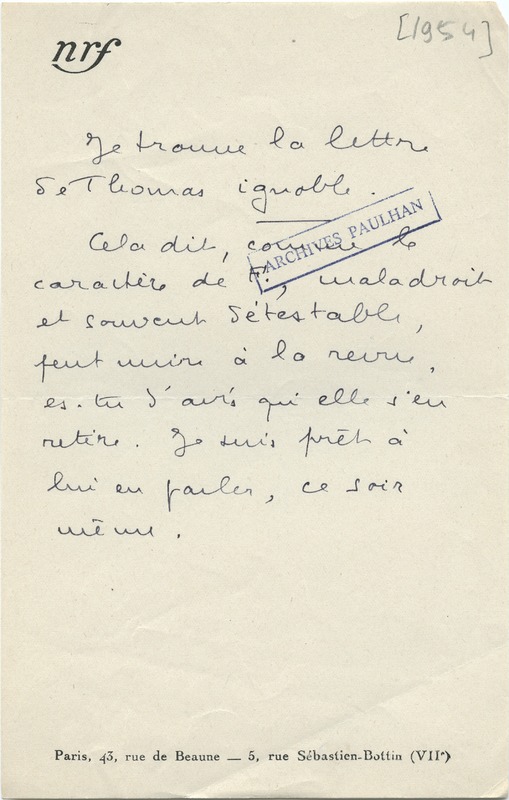 nrf
[1954]
Je trouve la lettre
de Thomas ignoble.
Cela dit, comme le
ARCHIVES PAULHAN
caractère de F., maladroit
et souvent détestable,
peut nuire à la revue,
es-tu d'avis qu'elle s'en
retire. Je suis prêt à
lui en parler, ce soir
même.
Paris, 43, rue de Beaune — 5, rue Sébastien-Bottin (VIIe)